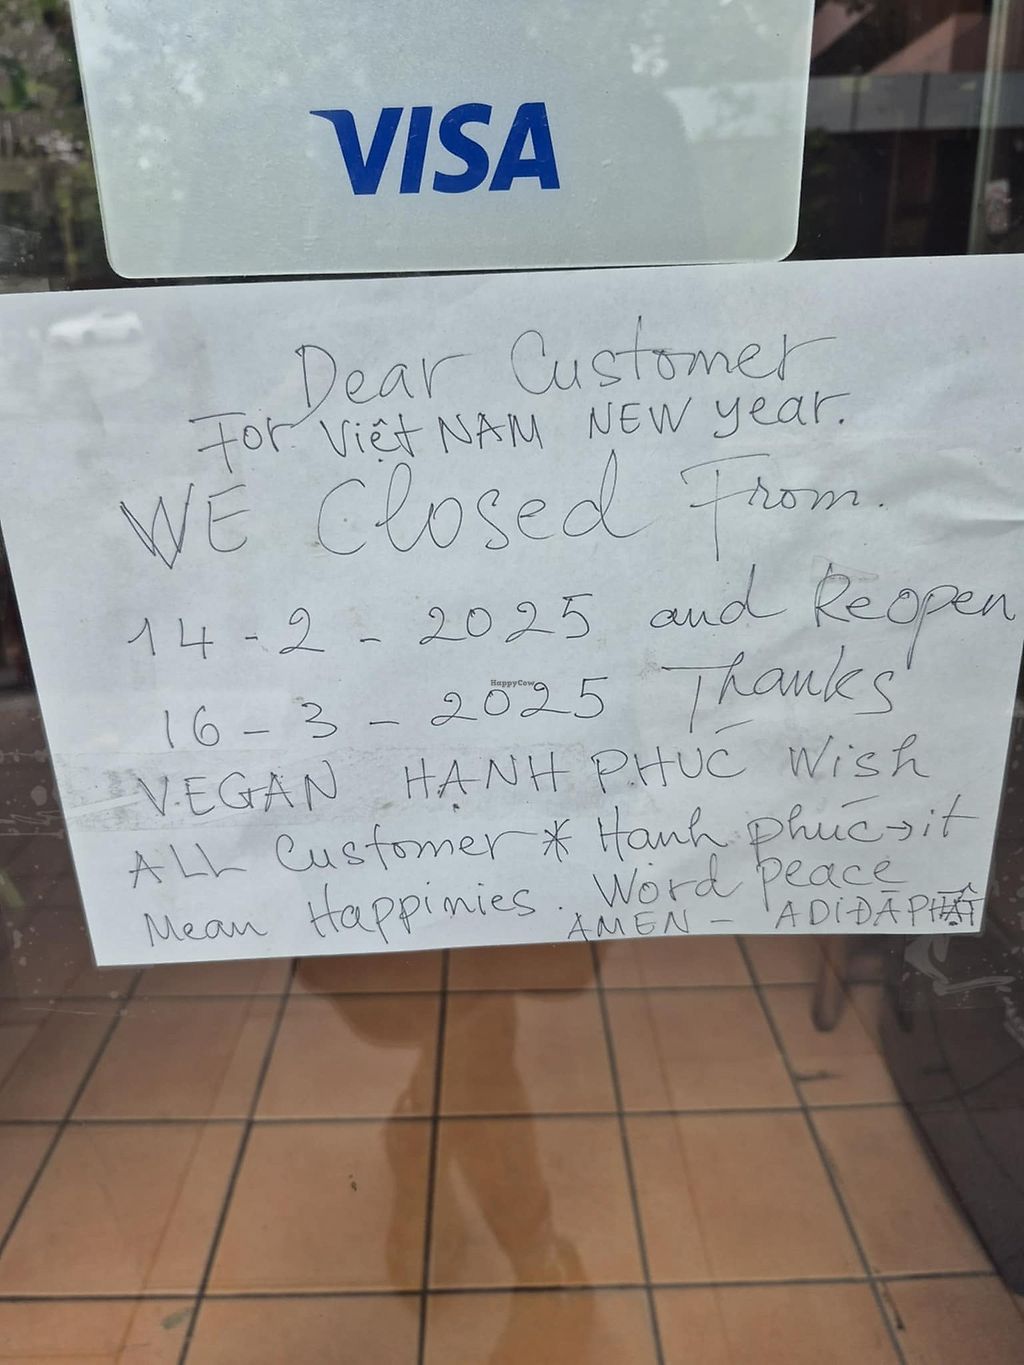 VISA
Dear Customer
For Việt NAM NEW year.
WE Closed From.
14-2-2025 and Reopen
16-3-2025 Thanks
HappyCow
VEGAN HẠNH PHÚC Wish
ALL Customer * Hạnh phúc→it
Mean Happinies. Word peace
AMEN - ADIĐÀPHẬT